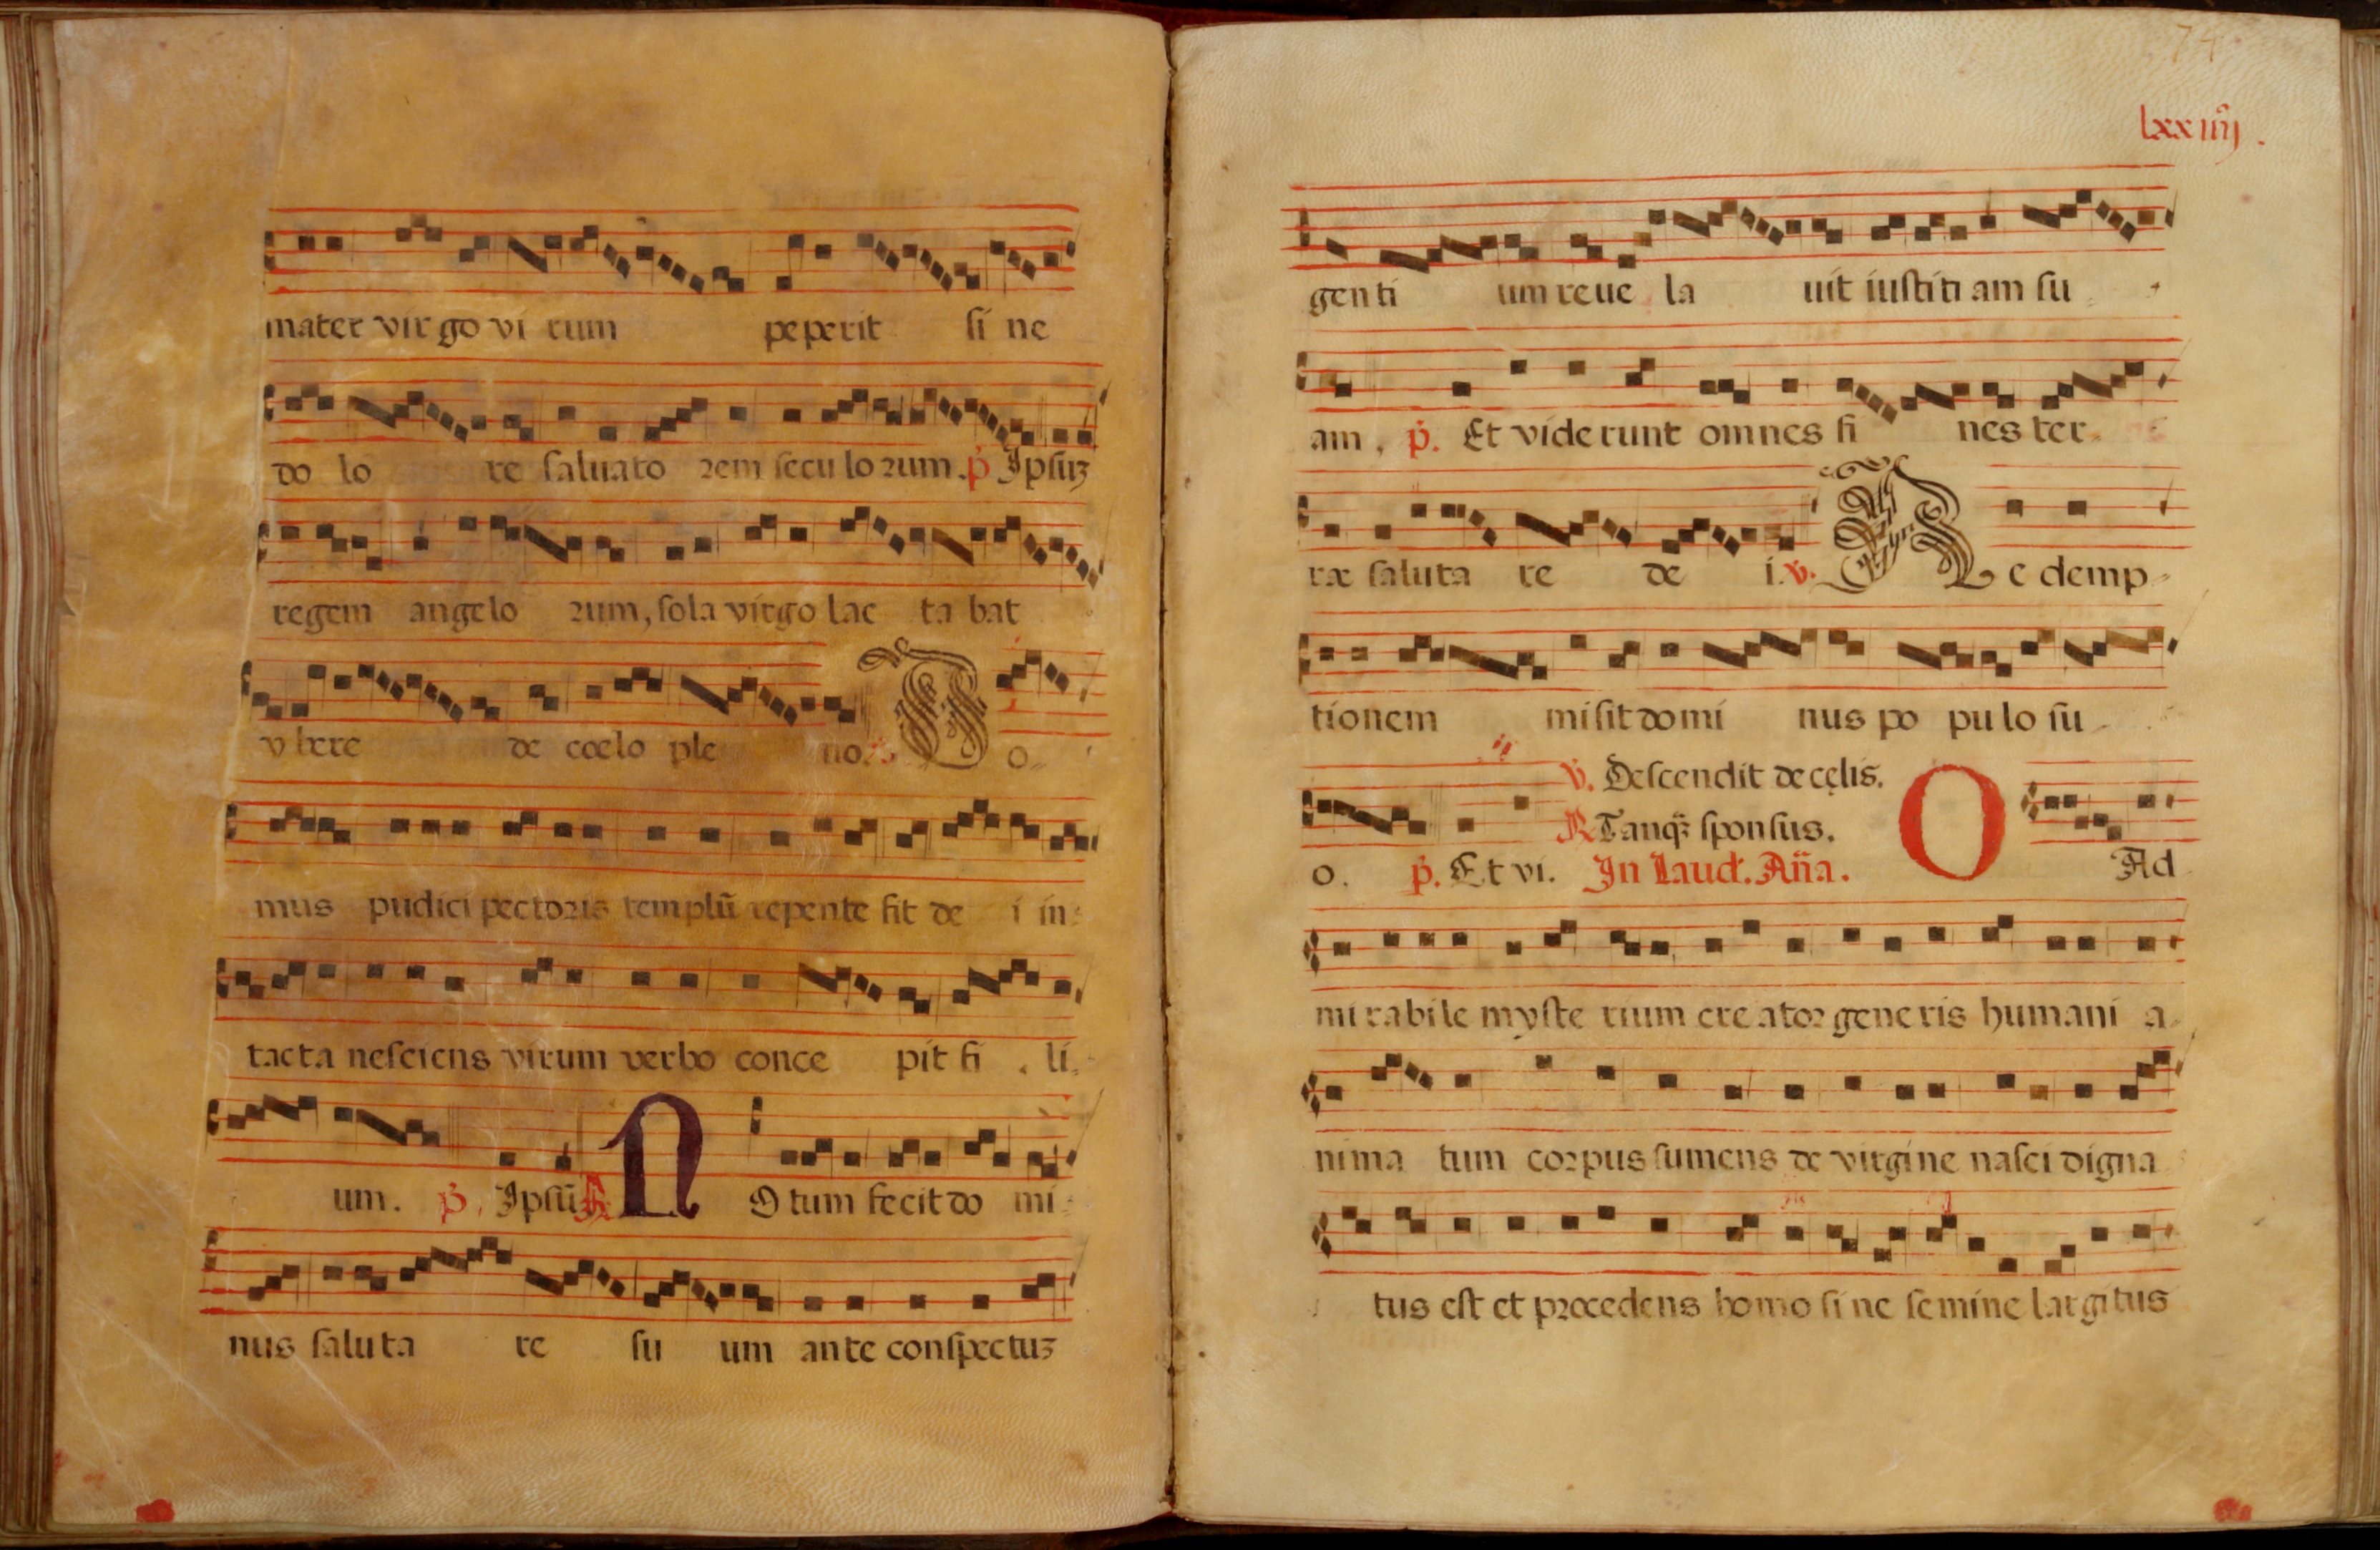 mater vir go vi rum peperit si ne
do lo re saluato rem secu lo rum. p̄. Ipsuȝ
regem angelo rum, sola virgo lac ta bat
v bere de cœlo ple no. D o-
mus pudici pectoris templū repente fit de i in-
tacta nesciens virum verbo conce pit fi li-
um. p̄. Ipsū R N O tum fecit do mi
nus saluta re su um ante conspectuȝ
74
lxxiiij.
genti um reue la uit iustiti am su-
am, p̄. Et viderunt omnes fi nes ter-
ræ saluta re de i. v. R e demp-
tionem misit domi nus po pu lo su-
v. Descendit de cęlis.
R Tanqȝ sponsus. O
o. p̄. Et vi. In Laud. Añа. Ad
mi rabile myste rium creator generis humani a-
nima tum corpus sumens de virgine nasci digna
tus est et procedens homo si ne semine largitus